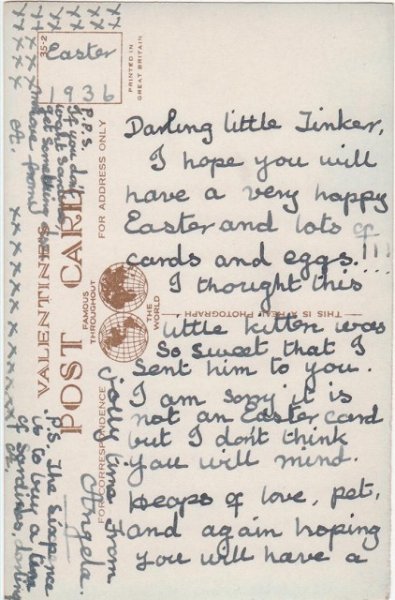 Easter
1936
35-2
PRINTED IN
GREAT BRITAIN
Darling little Tinker,
I hope you will
have a very happy
Easter and lots of
cards and eggs.!!!
I thought this
little kitten was
so sweet that I
sent him to you.
I am sorry it is
not an Easter card
but I don't think
you will mind.
Heaps of love, pet,
and again hoping
you will have a
jolly time from
Angela.
P.S. The sixpence
is to buy a tin
of Sardines, darling
P.P.S.
If you don't
want Sardines,
get something
more
VALENTINE'S
POST CARD
FAMOUS
THROUGHOUT
THE
WORLD
FOR CORRESPONDENCE
FOR ADDRESS ONLY
THIS IS A REAL PHOTOGRAPH